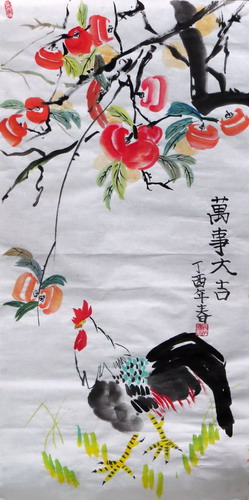 萬事大吉
丁酉年春